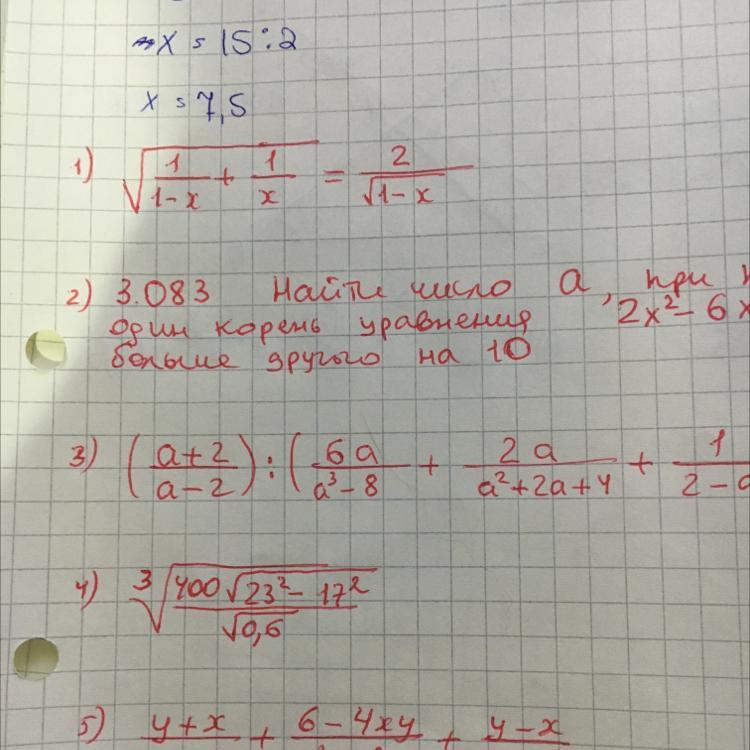 x = 15 : 2
x = 7,5
1) √(1/(1-x) + 1/x) = 2/√(1-x)
2) 3.083 Найти число a, при
один корень уравнения 2x² - 6x
больше другого на 10
3) ((a+2)/(a-2)) : (6a/(a³-8) + 2a/(a²+2a+4) + 1/(2-a
4) ∛(400√(23²-17²)/√0,6)
5) y+x + 6-4xy + y-x